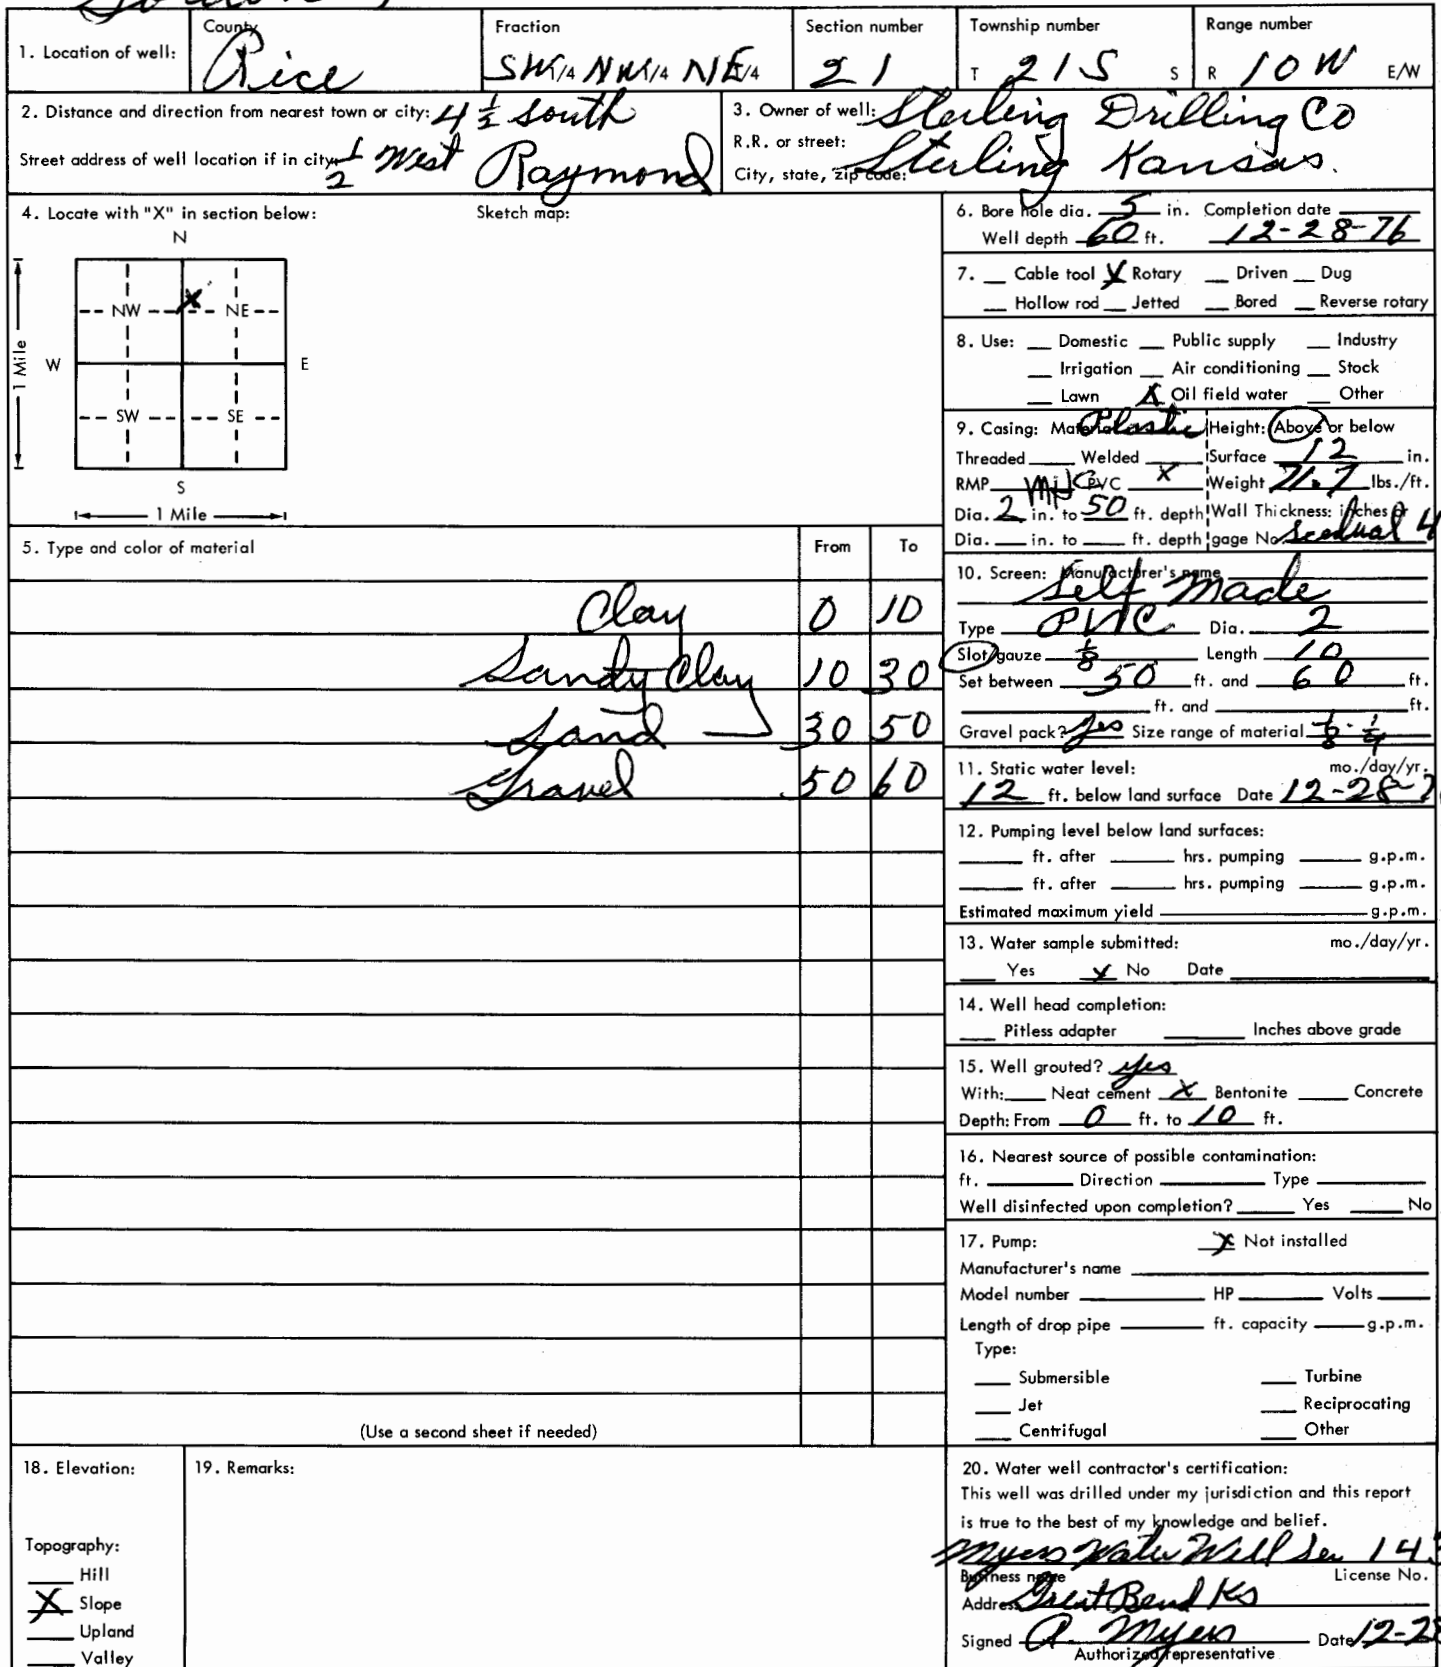 County Fraction Section number Township number Range number
1. Location of well: Rice SW1/4 NW1/4 NE1/4 21 T 21S S R 10W E/W
2. Distance and direction from nearest town or city: 4 1/2 South
Street address of well location if in city: 1/2 West Raymond
3. Owner of well: Sterling Drilling Co
R.R. or street:
City, state, zip code: Sterling Kansas.
4. Locate with "X" in section below: Sketch map:
N
NW X NE
W E
SW SE
S
1 Mile
1 Mile
5. Type and color of material From To
Clay 0 10
Sandy Clay 10 30
Sand 30 50
Gravel 50 60
(Use a second sheet if needed)
6. Bore hole dia. 5 in. Completion date
Well depth 60 ft. 12-28-76
7. __ Cable tool X Rotary __ Driven __ Dug
__ Hollow rod __ Jetted __ Bored __ Reverse rotary
8. Use: __ Domestic __ Public supply __ Industry
__ Irrigation __ Air conditioning __ Stock
__ Lawn X Oil field water __ Other
9. Casing: Material Plastic Height: Above or below
Threaded ___ Welded ___ Surface 12 in.
RMP ___ PVC X Weight lbs./ft.
Dia. 2 in. to 50 ft. depth Wall Thickness: inches or
Dia. ___ in. to ___ ft. depth gage No. Scedual 4
10. Screen: Manufacturer's name
Self Made
Type PVC Dia. 2
Slot/gauze 1/8 Length 10
Set between 50 ft. and 60 ft.
___ ft. and ___ ft.
Gravel pack? Yes Size range of material 1/8 - 1/4
11. Static water level: mo./day/yr.
12 ft. below land surface Date 12-28-7
12. Pumping level below land surfaces:
___ ft. after ___ hrs. pumping ___ g.p.m.
___ ft. after ___ hrs. pumping ___ g.p.m.
Estimated maximum yield ___ g.p.m.
13. Water sample submitted: mo./day/yr.
___ Yes X No Date ___
14. Well head completion:
___ Pitless adapter ___ Inches above grade
15. Well grouted? yes
With: ___ Neat cement X Bentonite ___ Concrete
Depth: From 0 ft. to 10 ft.
16. Nearest source of possible contamination:
ft. ___ Direction ___ Type ___
Well disinfected upon completion? ___ Yes ___ No
17. Pump: X Not installed
Manufacturer's name ___
Model number ___ HP ___ Volts ___
Length of drop pipe ___ ft. capacity ___ g.p.m.
Type:
___ Submersible ___ Turbine
___ Jet ___ Reciprocating
___ Centrifugal ___ Other
18. Elevation:
Topography:
___ Hill
X Slope
___ Upland
___ Valley
19. Remarks:
20. Water well contractor's certification:
This well was drilled under my jurisdiction and this report
is true to the best of my knowledge and belief.
Myers Water Well Ser 143
Business name License No.
Address Great Bend Ks
Signed A. Myers Date 12-28
Authorized representative